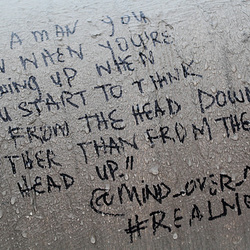 A MAN YOU
WHEN YOU'RE
UP WHEN
START TO THINK
FROM THE HEAD DOWN
THAN FROM THE
HEAD UP."
@MIND_OVER_